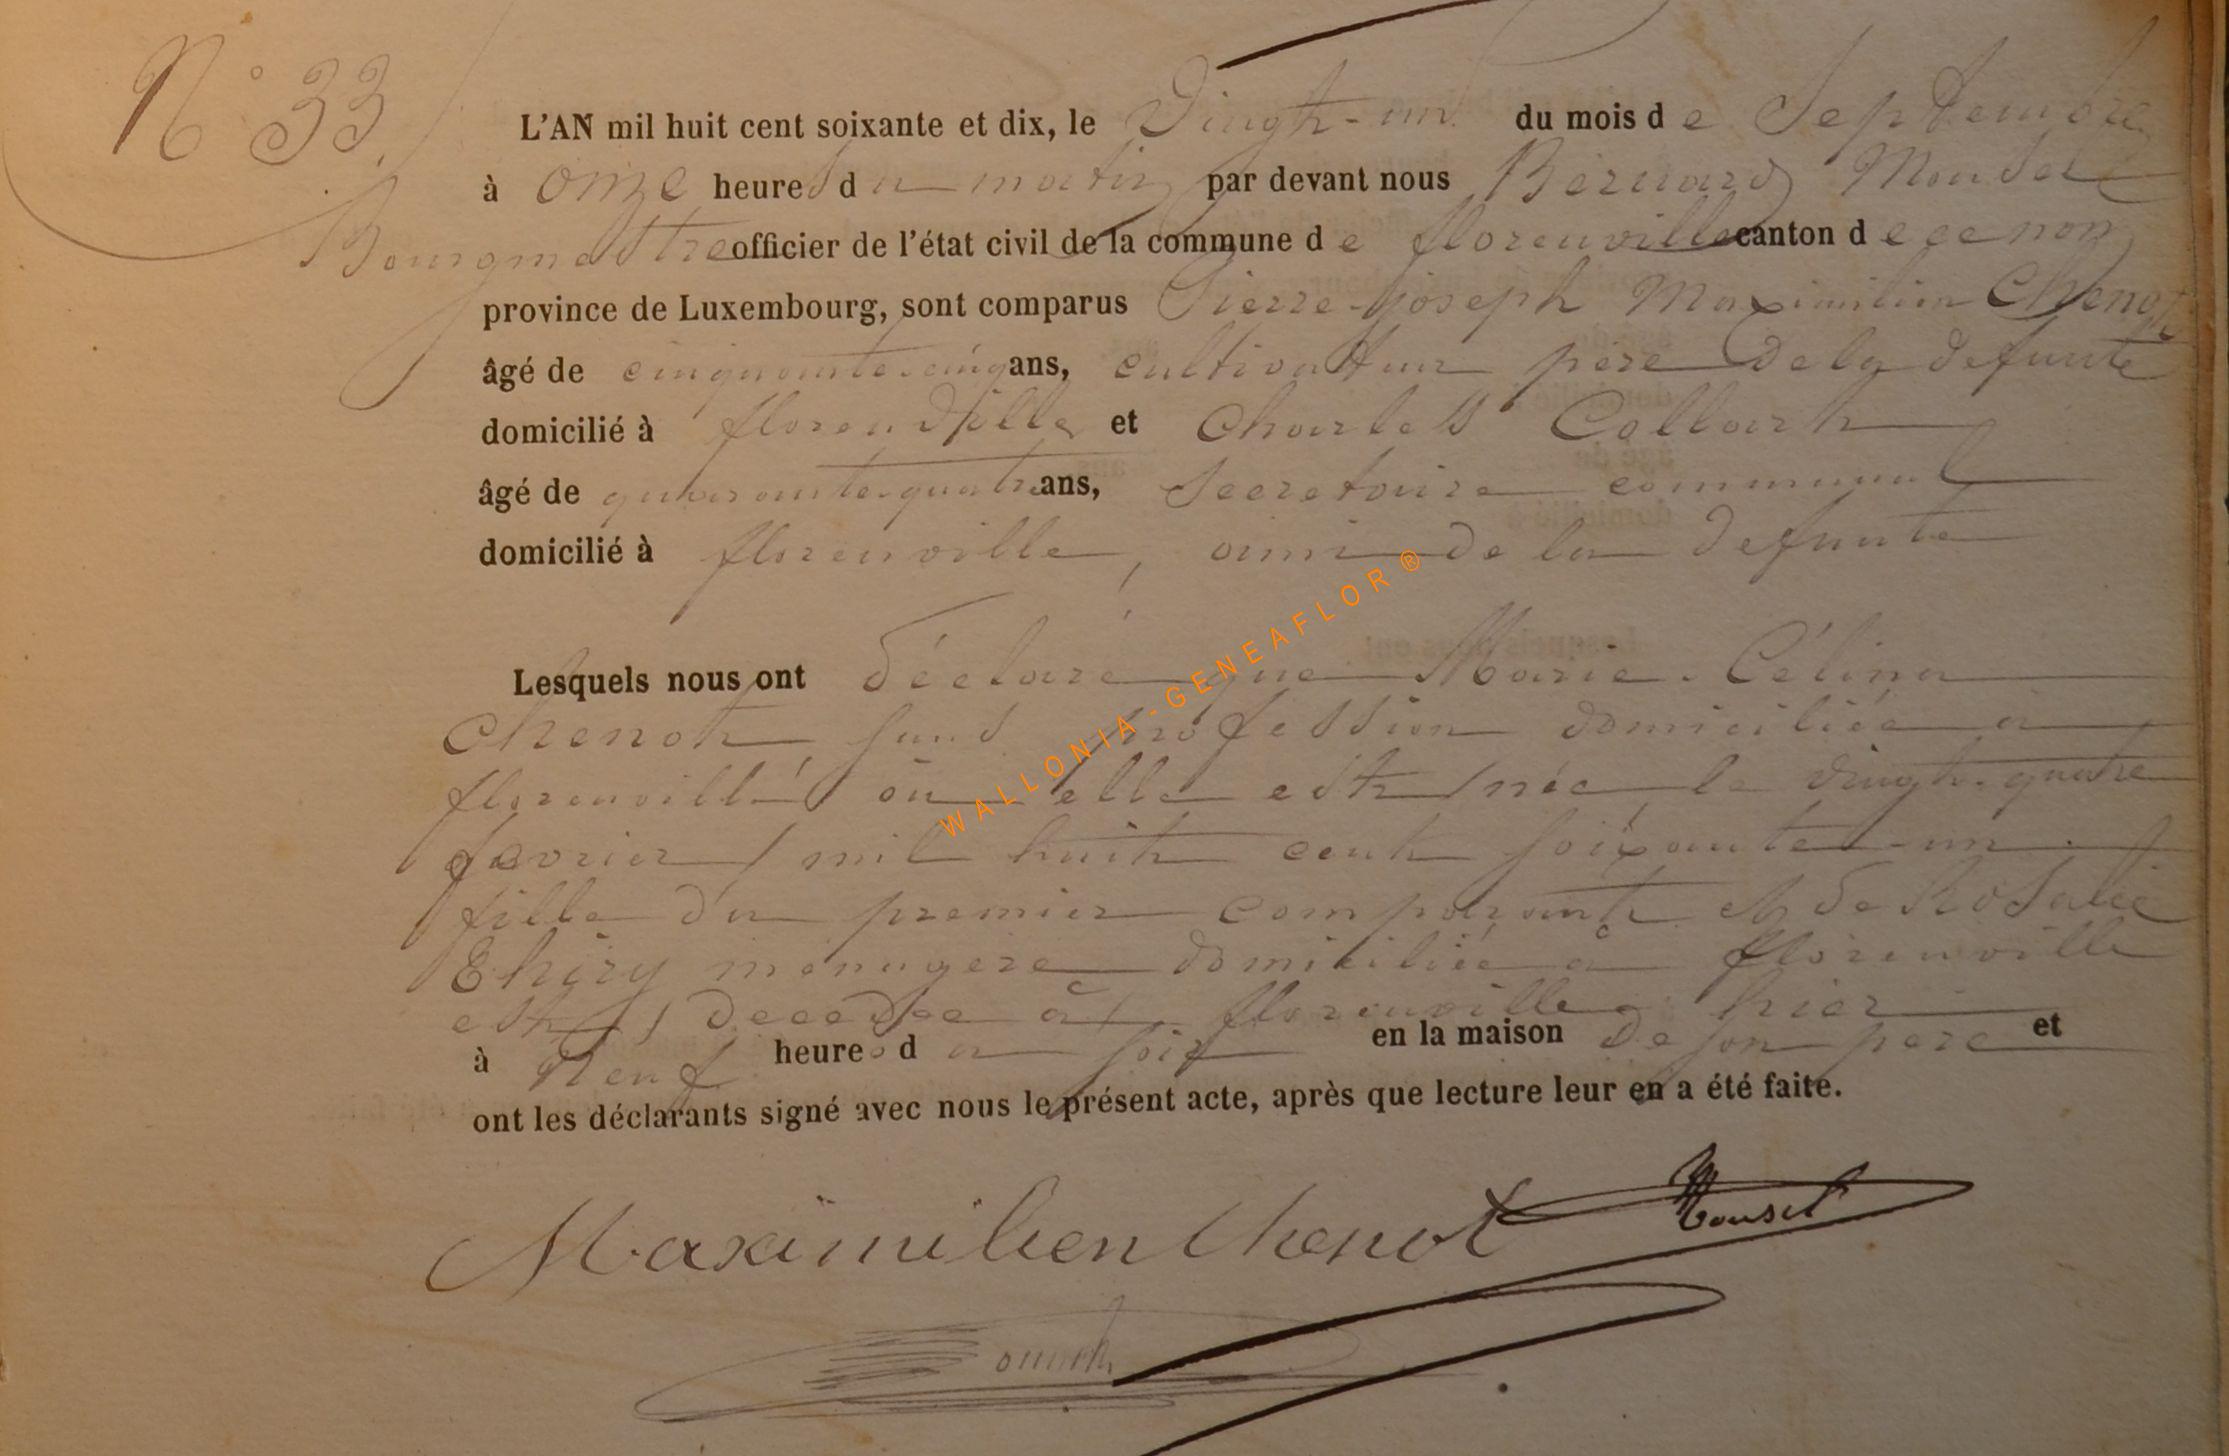 N° 33.
L'AN mil huit cent soixante et dix, le Vingt-un du mois de Septembre
à onze heures du matin par devant nous Bernard Mousel
Bourgmestre officier de l'état civil de la commune de florenville canton de ce nom
province de Luxembourg, sont comparus Pierre-Joseph Maximilien Chenot
âgé de cinquante-cinq ans, cultivateur père de la defunte
domicilié à florenville et Charles Collart
âgé de quarante-quatre ans, Secretaire communal
domicilié à florenville, ami de la defunte
Lesquels nous ont déclaré que Marie-Célina
Chenot, sans profession domiciliée à
florenville où elle est née le vingt-quatre
fevrier mil huit cent soixante-un
fille du premier comparant et de Rosalie
Thiry menagere domiciliée à florenville
est decedée à florenville hier
à Neuf heures du soir en la maison de son pere et
ont les déclarants signé avec nous le présent acte, après que lecture leur en a été faite.
Maximilien Chenot Mousel
WALLONIA-GENEAFLOR®